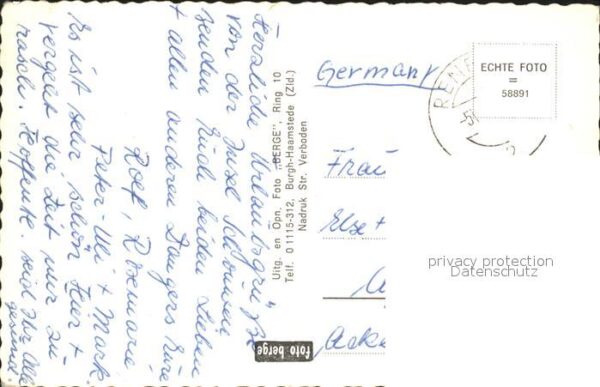 Herzliche Urlaubsgrüße
von der Insel Schouwen
senden Euch beiden Lieben
+ allen anderen Eure
Rolf, Rosemarie,
Peter-Uli + Mark
Es ist sehr schön hier +
vergeht die Zeit nur zu
rasch. Hoffentl. seid Ihr alle
gesund
Uitg. en Opn. Foto „BERGE”, Ring 10
Telf. 01115-312, Burgh-Haamstede (Zld.)
Nadruk Str. Verboden
foto berge
Germany
ECHTE FOTO
=
58891
RENE
Frau
Else +
Acke
privacy protection
Datenschutz